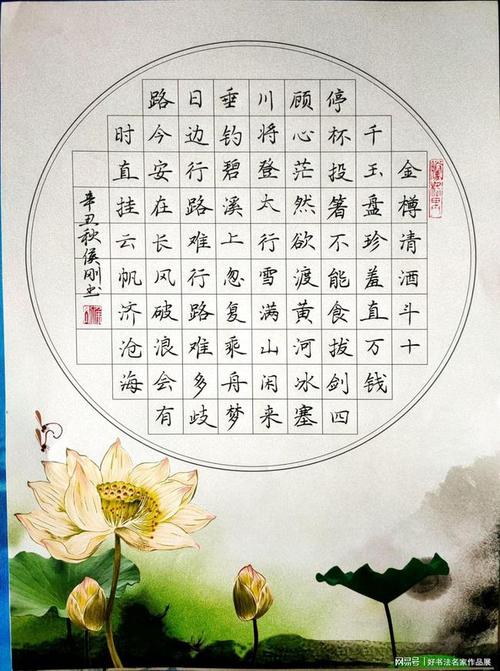 金樽清酒斗十
千玉盘珍羞直万钱
停杯投箸不能食拔剑四
顾心茫然欲渡黄河冰塞
川将登太行雪满山闲来
垂钓碧溪上忽复乘舟梦
日边行路难行路难多歧
路今安在长风破浪会有
时直挂云帆济沧海
辛丑秋侯刚书
网易号 | 好书法名家作品展